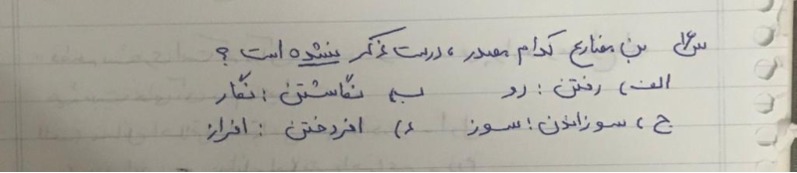 س۴) بن مضارع کدام مصدر ، درست ذکر نشده است ؟
الف) رفتن : رو ب) نگاشتن : نگار
ج) سوزاندن : سوز د) افروختن : افراز